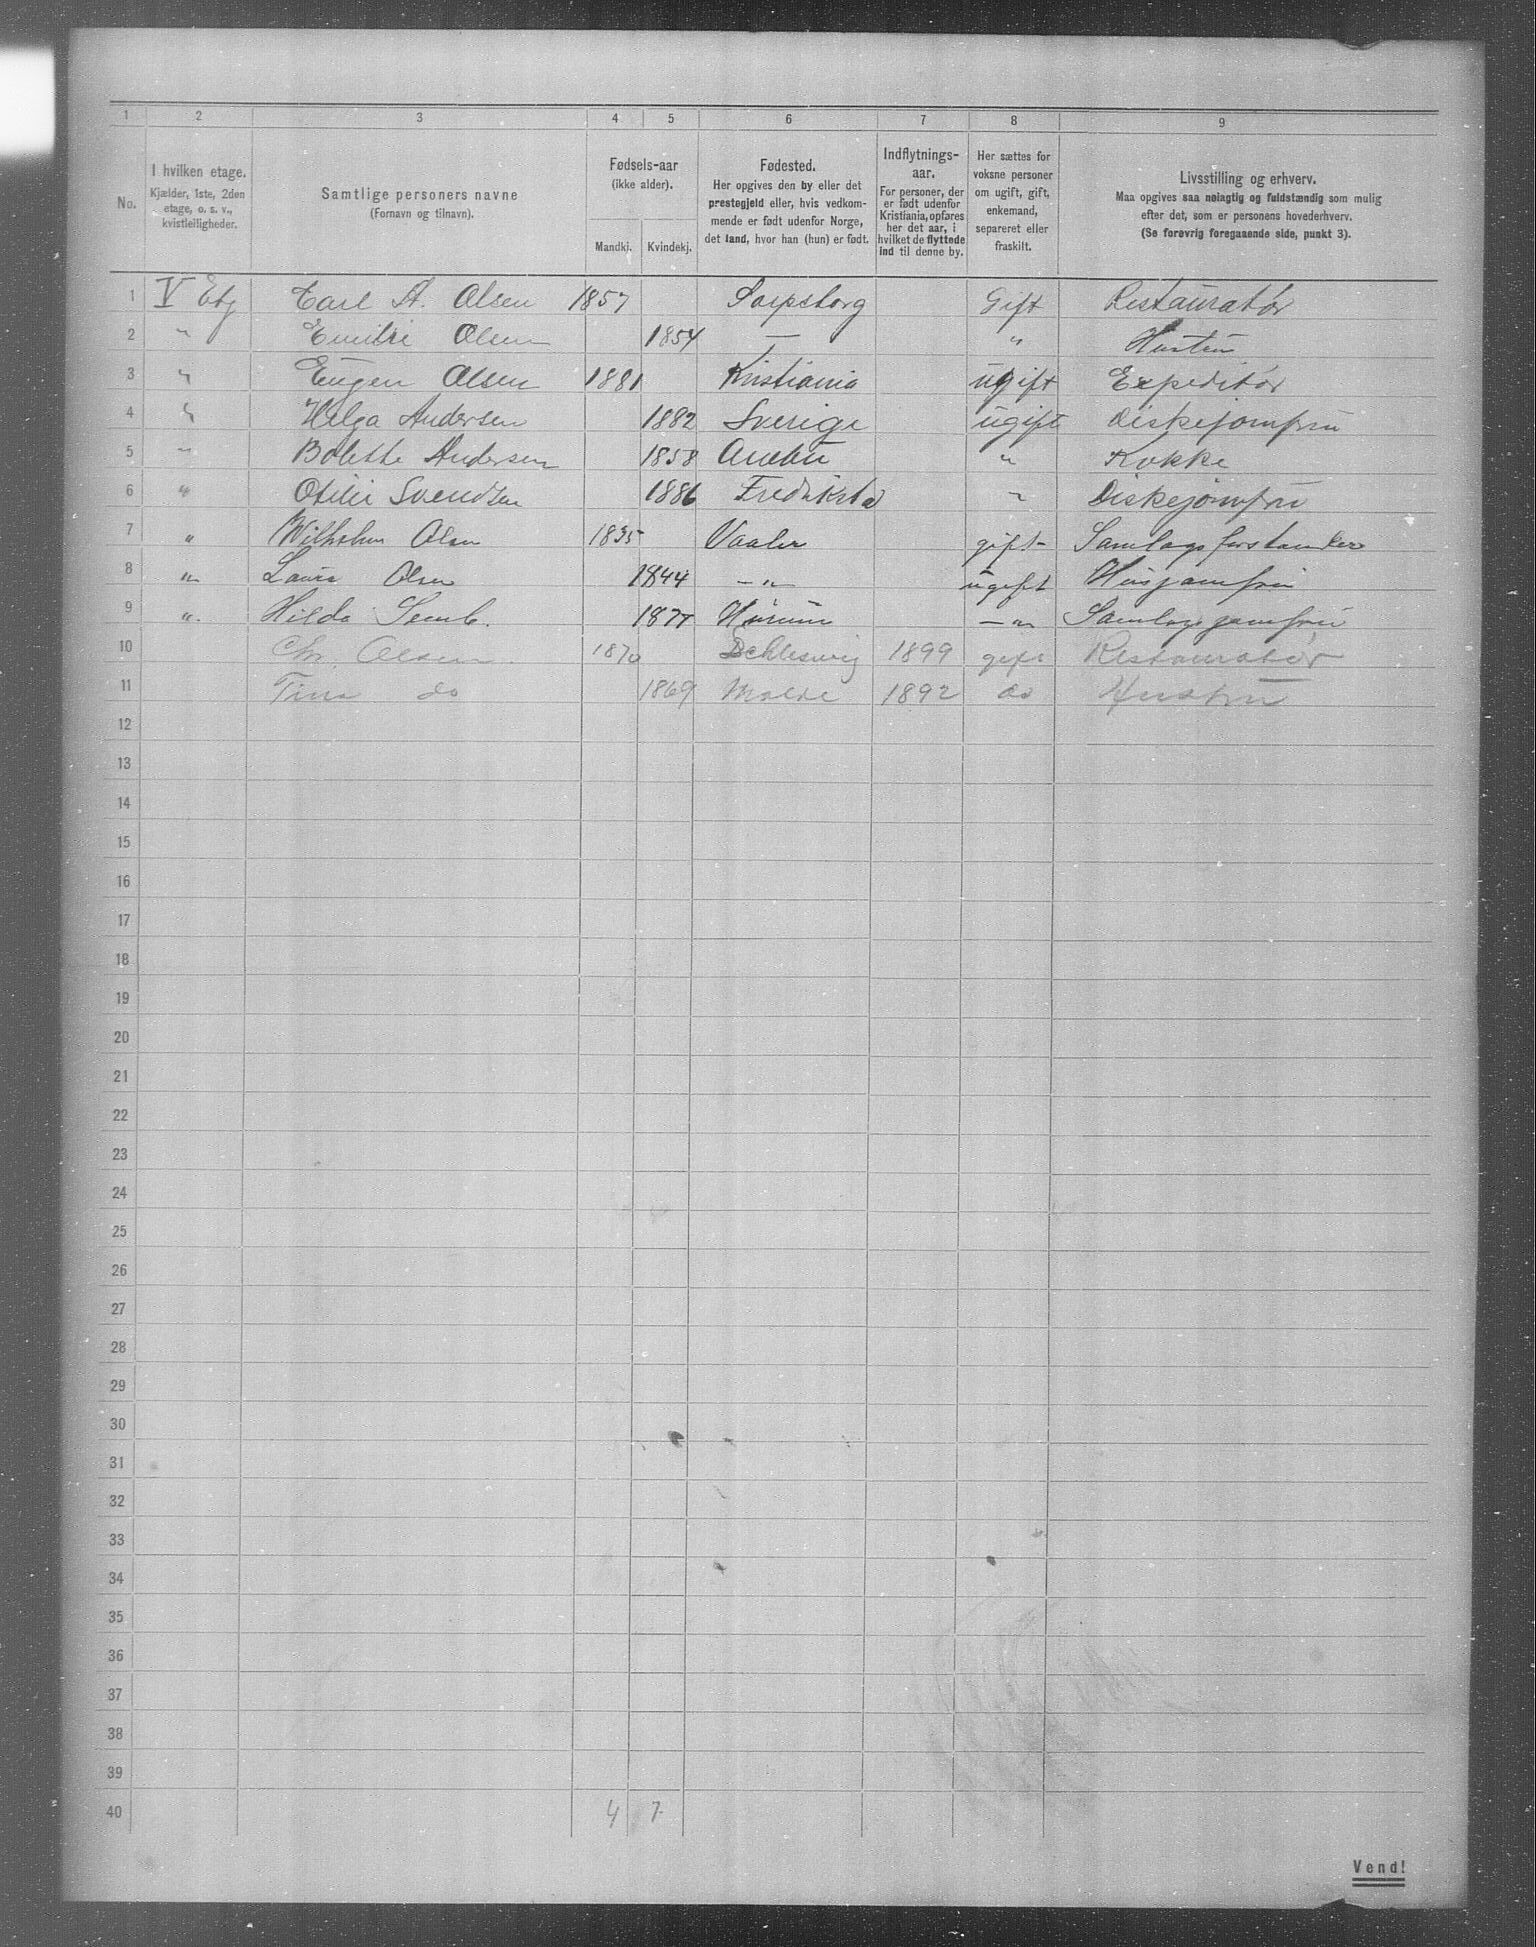 1 2 3 4 5 6 7 8 9
No.
I hvilken etage.
Kjælder, 1ste, 2den
etage, o. s. v.,
kvistleiligheder.
Samtlige personers navne
(Fornavn og tilnavn).
Fødsels-aar
(ikke alder).
Mandkj. Kvindekj.
Fødested.
Her opgives den by eller det
prestegjeld eller, hvis vedkom-
mende er født udenfor Norge,
det land, hvor han (hun) er født.
Indflytnings-
aar.
For personer, der
er født udenfor
Kristiania, opføres
her det aar, i
hvilket de flyttede
ind til denne by.
Her sættes for
voksne personer
om ugift, gift,
enkemand,
separeret eller
fraskilt.
Livsstilling og erhverv.
Maa opgives saa nøiagtig og fuldstændig som mulig
efter det, som er personens hovederhverv.
(Se forøvrig foregaaende side, punkt 3).
1 V Etg Carl A. Olsen 1857 Sarpsborg Gift Restauratør
2 " Emilie Olsen 1854 — " Hustru
3 " Eugen Olsen 1881 Kristiania ugift Expeditør
4 " Helga Andersen 1882 Sverige ugift Diskejomfru
5 " Bolette Andersen 1858 " Kokke
6 " Otilie Svendsen 1886 Fredriksta " Diskejomfru
7 " Wilhelm Olsen 1835 Vaaler gift Samlagsforstander
8 " Laura Olsen 1844 —"— ugift Husjomfru
9 " Hilda Semb. 1877 Hurum —"— Samlagsjomfru
10 Chr. Olsen 1870 Schleswig 1899 gift Restauratør
11 Tina do 1869 Molde 1892 do Hustru
12
13
14
15
16
17
18
19
20
21
22
23
24
25
26
27
28
29
30
31
32
33
34
35
36
37
38
39
40 4 7
Vend!